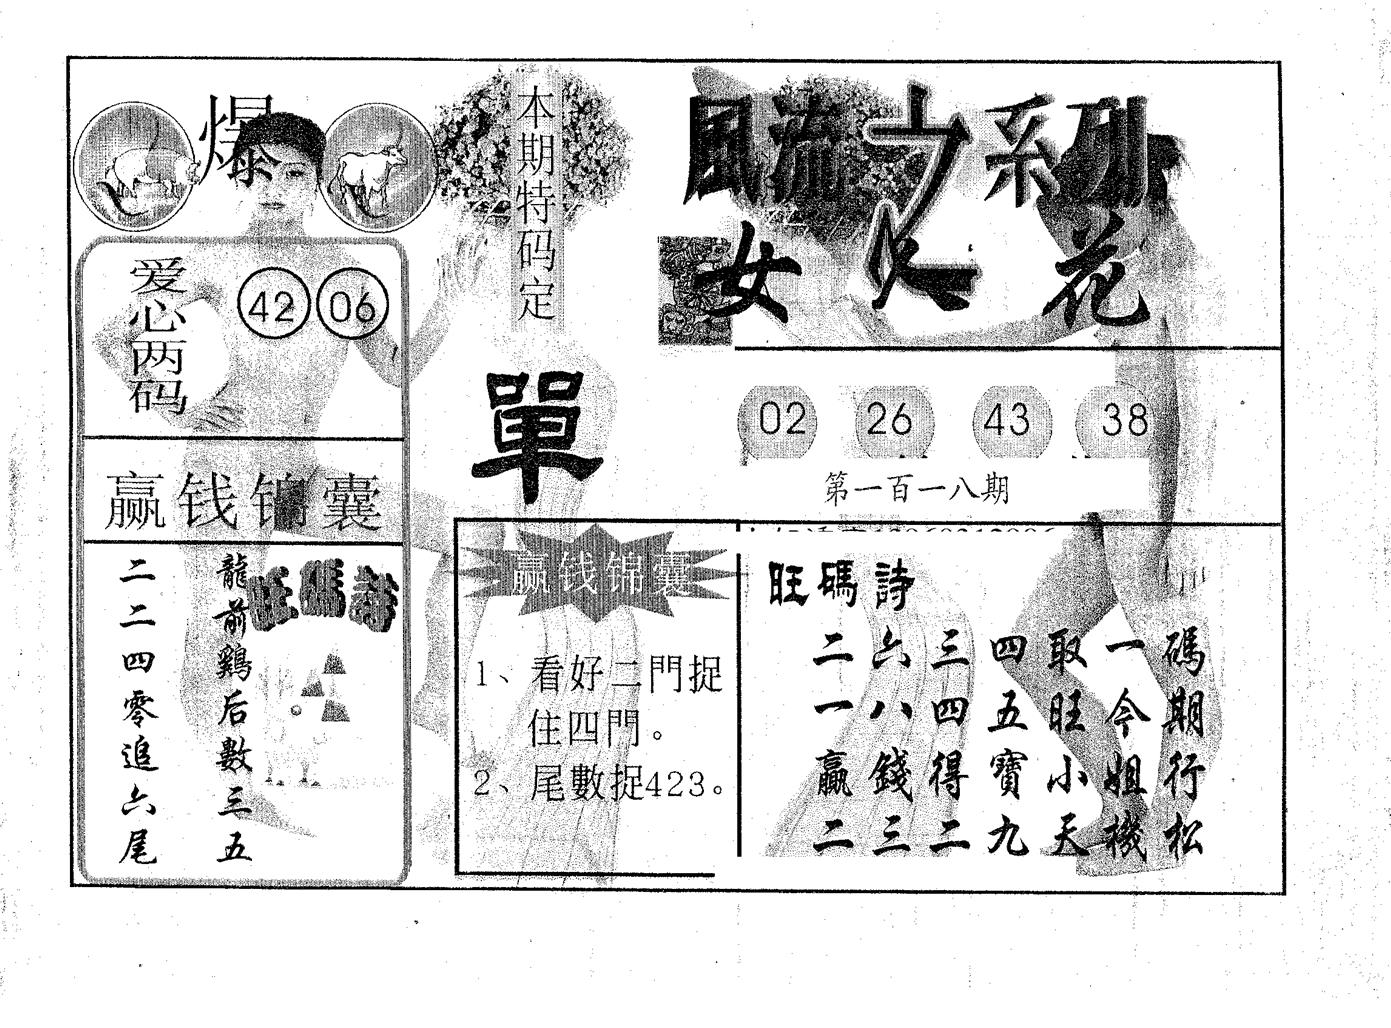 爆
爱心两码
42 06
赢钱锦囊
旺碼詩
龍前鷄后數三五
二二四零追六尾
本期特码定
單
赢钱锦囊
1、看好二門捉
住四門。
2、尾數捉423。
風流之系列
女人花
02 26 43 38
第一百一八期
旺碼詩
二六三四取一碼
一八四五旺今期
贏錢得寶小姐行
二三二九天機松